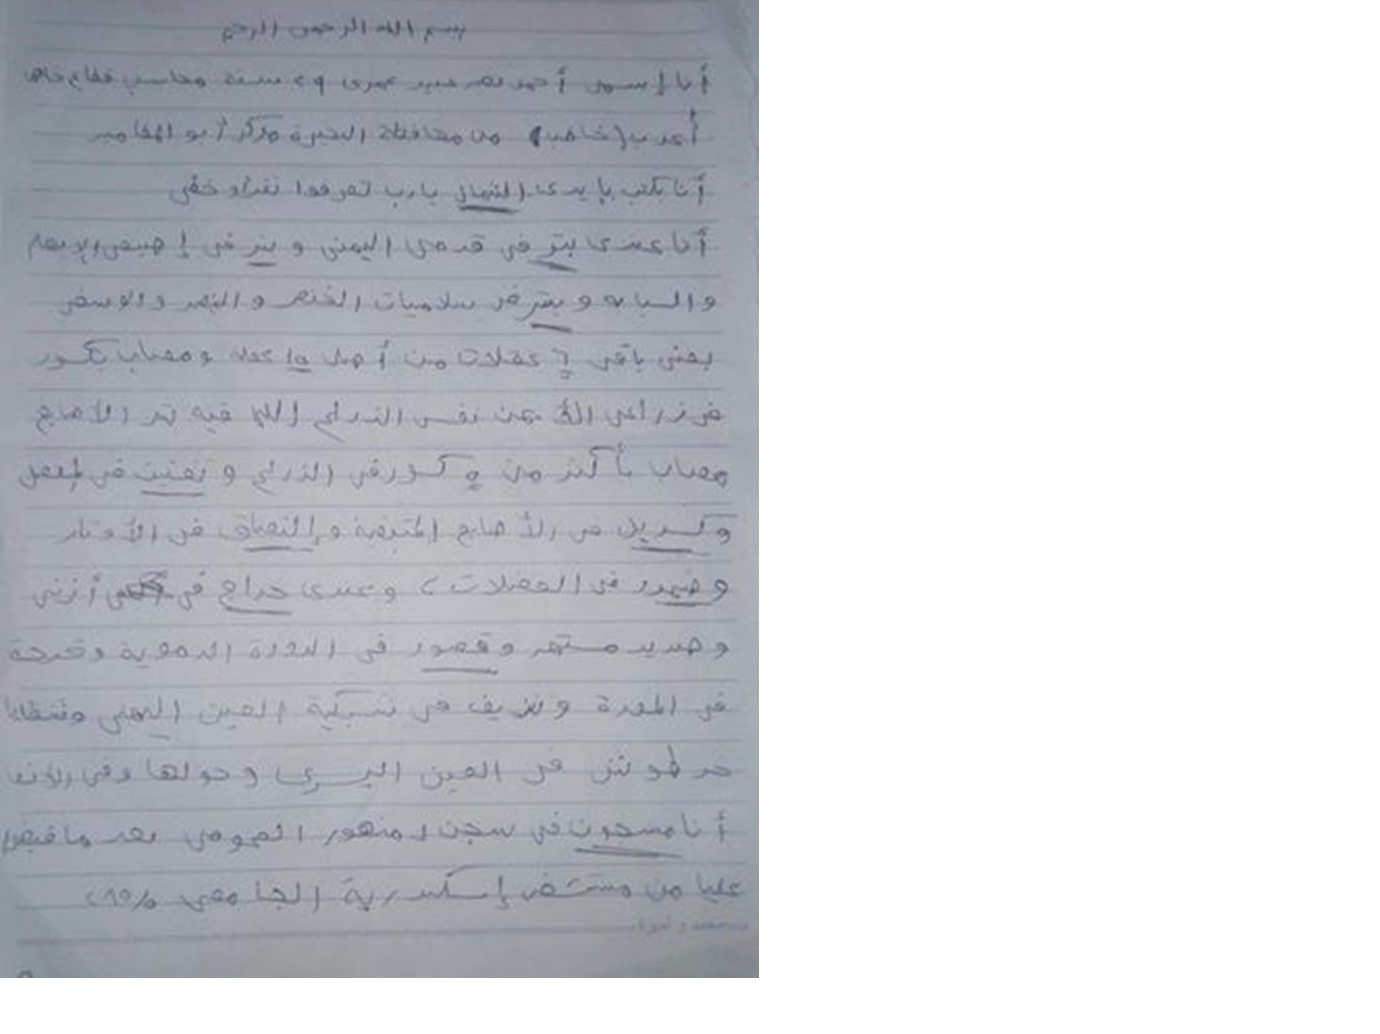 بسم الله الرحمن الرحيم
أنا إسمى أحمد نصر عبيد عمرى ٢٩ سنة محاسب قطاع خاص
أعزب (خاطب) من محافظة البحيرة مركز أبو المطامير
أنا بكتب بإيدى الشمال يارب تعرفوا تقرأو خطى
أنا عندى بتر فى قدمى اليمنى و بتر فى إصبعى الإبهام
والسبابه و بتر فى سلاميات الخنصر و البنصر والوسطى
يعنى باقى عقلات من أصل ١٥ عقله ومصاب بكسور
فى زراعى نفس الذراع اللى فيه بتر الأصابع
مصاب بأكثر من ٥ كسور فى الذراع و تفتيت فى المفصل
و فى الأصابع المتبقية و إلتصاق فى الأوتار
و ضمور فى العضلات وعندى جراح فى أذنى
وصديد مستمر وقصور فى الدورة الدموية وقرحة
فى المعدة ونزيف فى شبكية العين اليمنى وشظايا
خرطوش فى العين اليسرى وحولها وفى الأنف
أنا مسجون فى سجن دمنهور العمومى بعد ما قبض
عليا من مستشفى إسكندرية الجامعى